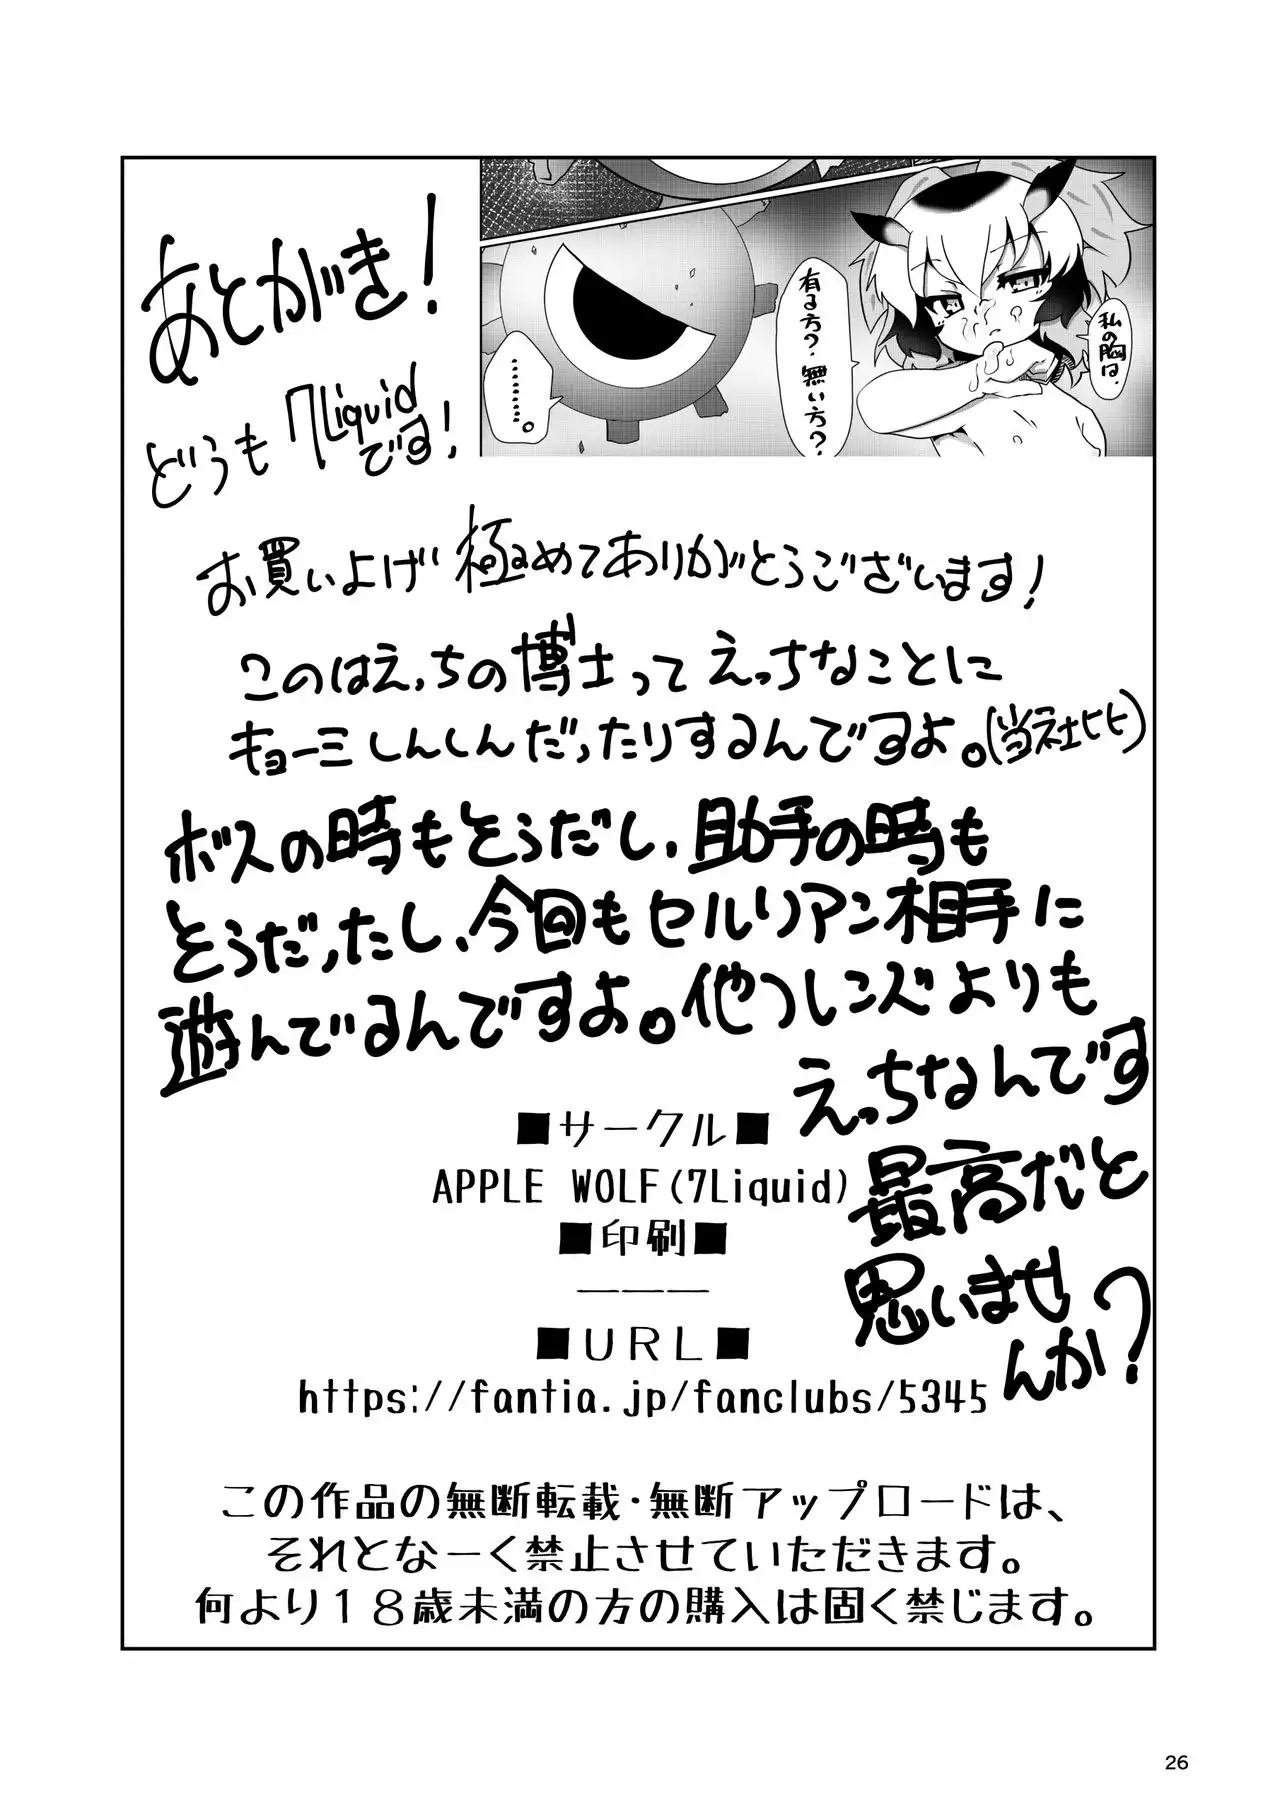 あとがき!
どうも 7Liquidです!
私の胸は、
有る方?無い方?
………。
お買いよげ 極めてありがとうございます!
このはえっちの博士って えっちなことに
キョーミしんしんだったりするんですよ。(当社ヒヒ)
ボスの時もそうだし、助手の時も
そうだったし、今回もセルリアン相手に
遊んでるんですよ。他フレンズよりも
えっちなんです
最高だと
思いませ
んか?
■サークル■
APPLE WOLF(7Liquid)
■印刷■
ーーー
■URL■
https://fantia.jp/fanclubs/5345
この作品の無断転載・無断アップロードは、
それとなーく禁止させていただきます。
何より18歳未満の方の購入は固く禁じます。
26